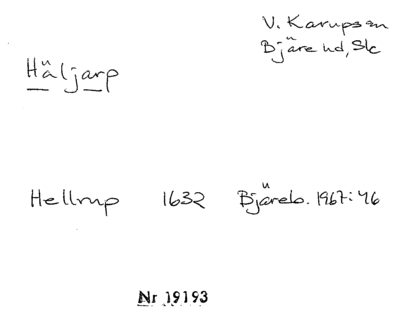 V. Karupssn
Bjäre hd, Skc
Häljarp
Hellrup 1632 Bjäreb. 1967:46
Nr 19193